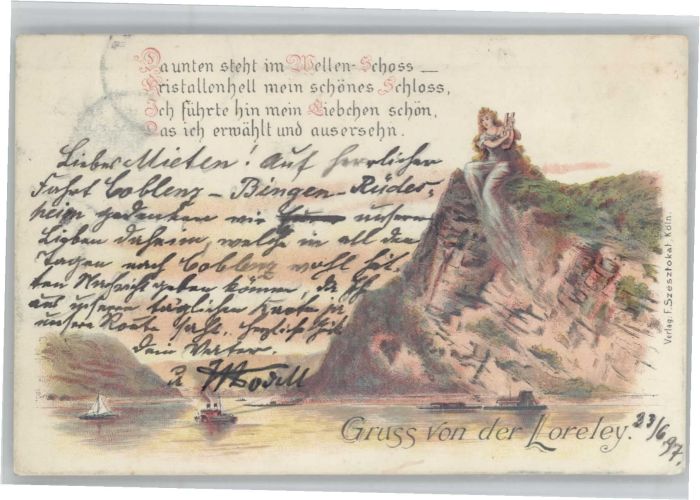 Da unten steht im Wellen-Schoss —
Kristallenhell mein schönes Schloss,
Ich führte hin mein Liebchen schön,
Das ich erwählt und ausersehn.
Liebes Mieken! Auf herrlicher
Fahrt Coblenz – Bingen – Rüdes-
heim gedenken wir unsere
Lieben daheim, welche in all den
Tagen nach Coblenz wohl hät-
ten Nachricht geben können, da Ihr
aus unseren täglichen Karten ja
unsere Route
dem Vater.
u
Verlag: F. Szesztokat, Köln.
Gruss von der Loreley.
23/6 97.